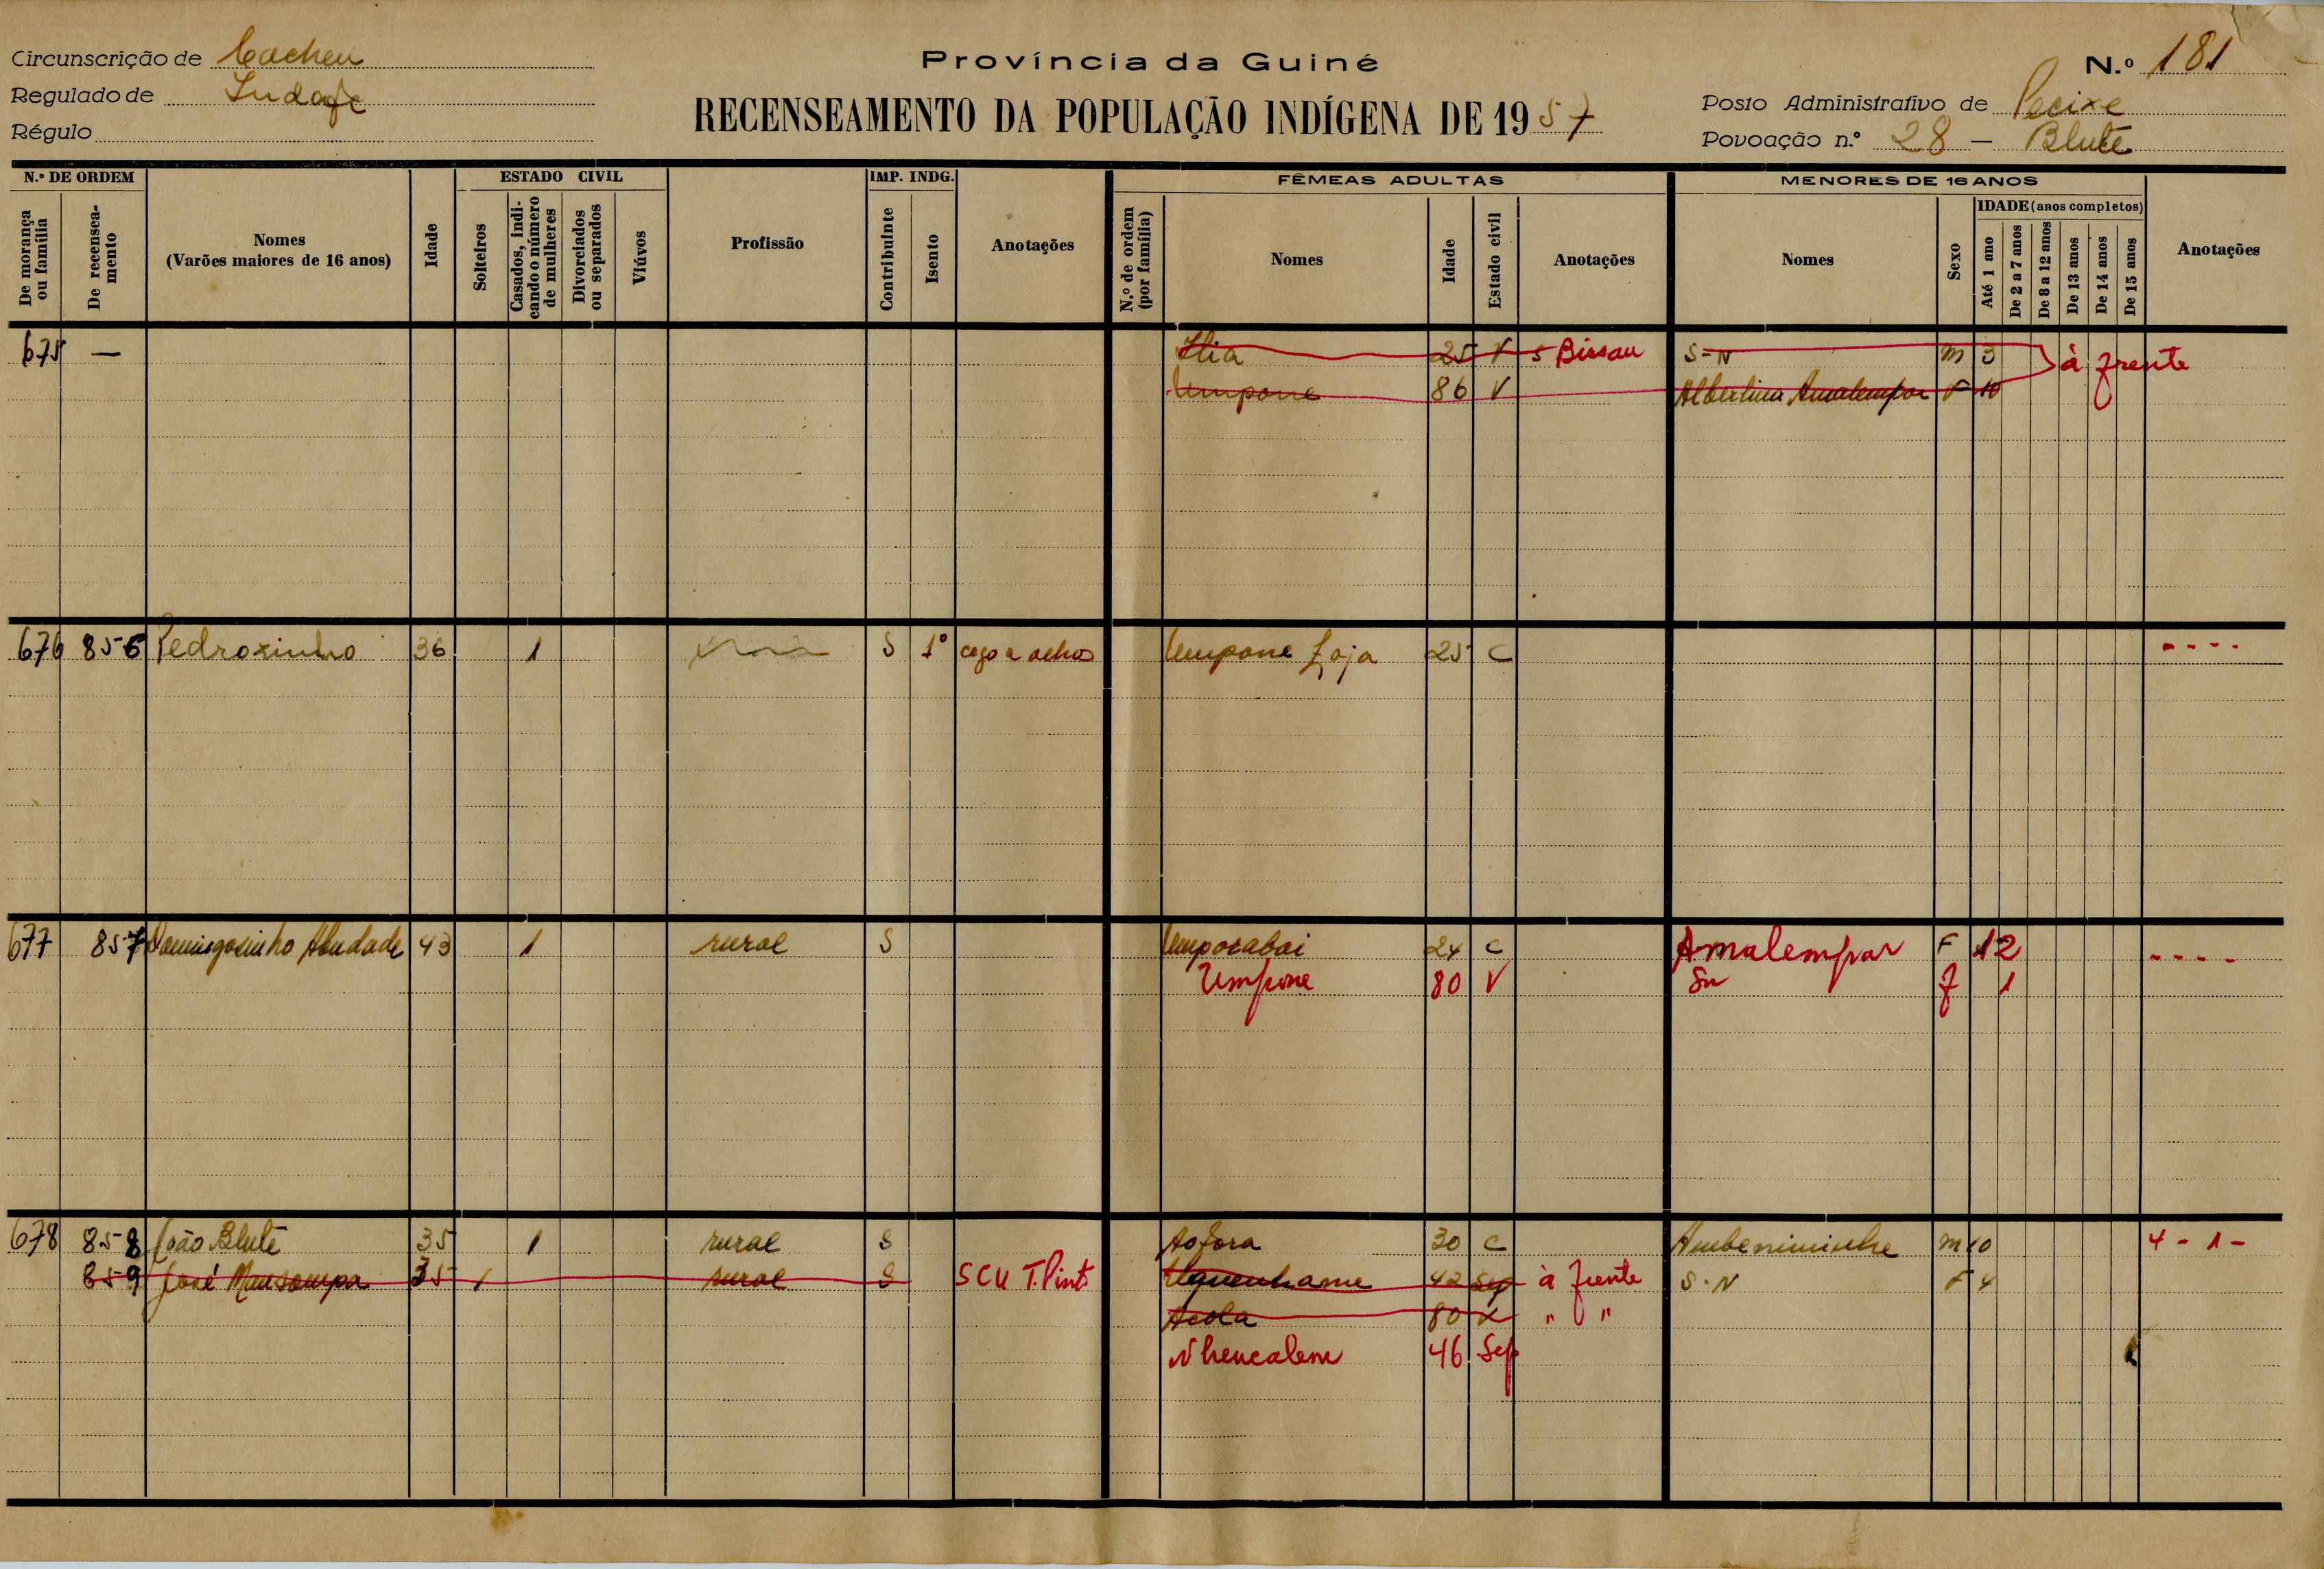 Circunscrição de Cacheu
Regulado de Indafe
Régulo
Província da Guiné
RECENSEAMENTO DA POPULAÇÃO INDÍGENA DE 1957
N.º 181
Posto Administrativo de Pecixe
Povoação n.º 28 – Blute
N.º DE ORDEM
De morança ou família
De recenseamento
Nomes
(Varões maiores de 16 anos)
Idade
ESTADO CIVIL
Solteiros
Casados, indicando o número de mulheres
Divorciados ou separados
Viúvos
Profissão
IMP. INDG.
Contribuinte
Isento
Anotações
FÊMEAS ADULTAS
N.º de ordem (por família)
Nomes
Idade
Estado civil
Anotações
MENORES DE 16 ANOS
Nomes
Sexo
IDADE (anos completos)
Até 1 ano
De 2 a 7 anos
De 8 a 12 anos
De 13 anos
De 14 anos
De 15 anos
Anotações
675 — Ilia 25 V 5 Bissau S-N M 3 à frente
Umpone 86 V Albertina Amalempar F 10
676 856 Pedrozinho 36 1 S 1º cego a olhos Umpone Joja 25 C - - - -
677 857 Domingosinho Abudade 43 1 rural S Umporabai 24 C Amalempar F 12 - - - -
Umpone 80 V Sn f 1
678 858 João Blute 35 1 rural S Aofora 30 C Ambeniminhe M 10 4 - 1 -
859 José Mansompa 35 1 rural S SCU T. Pinto Uquenhame 42 Sep à frente S-N F 4
Acola 80 V " "
Nhencalem 46 Sep